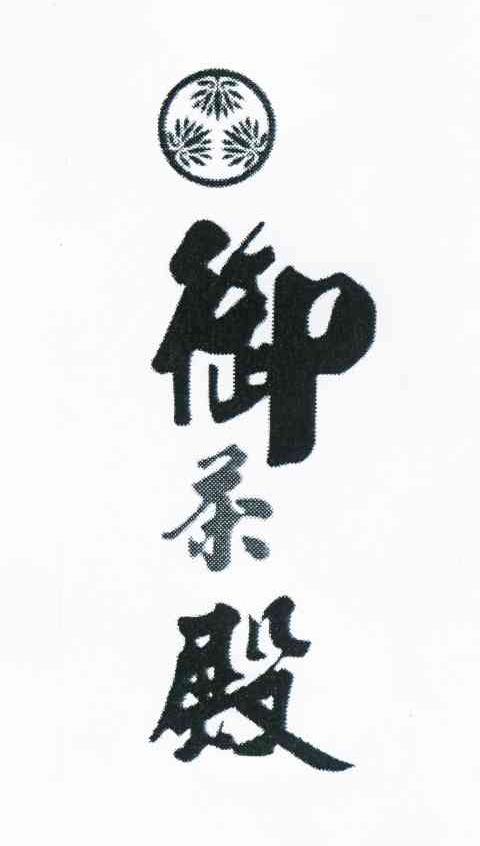 御茶殿